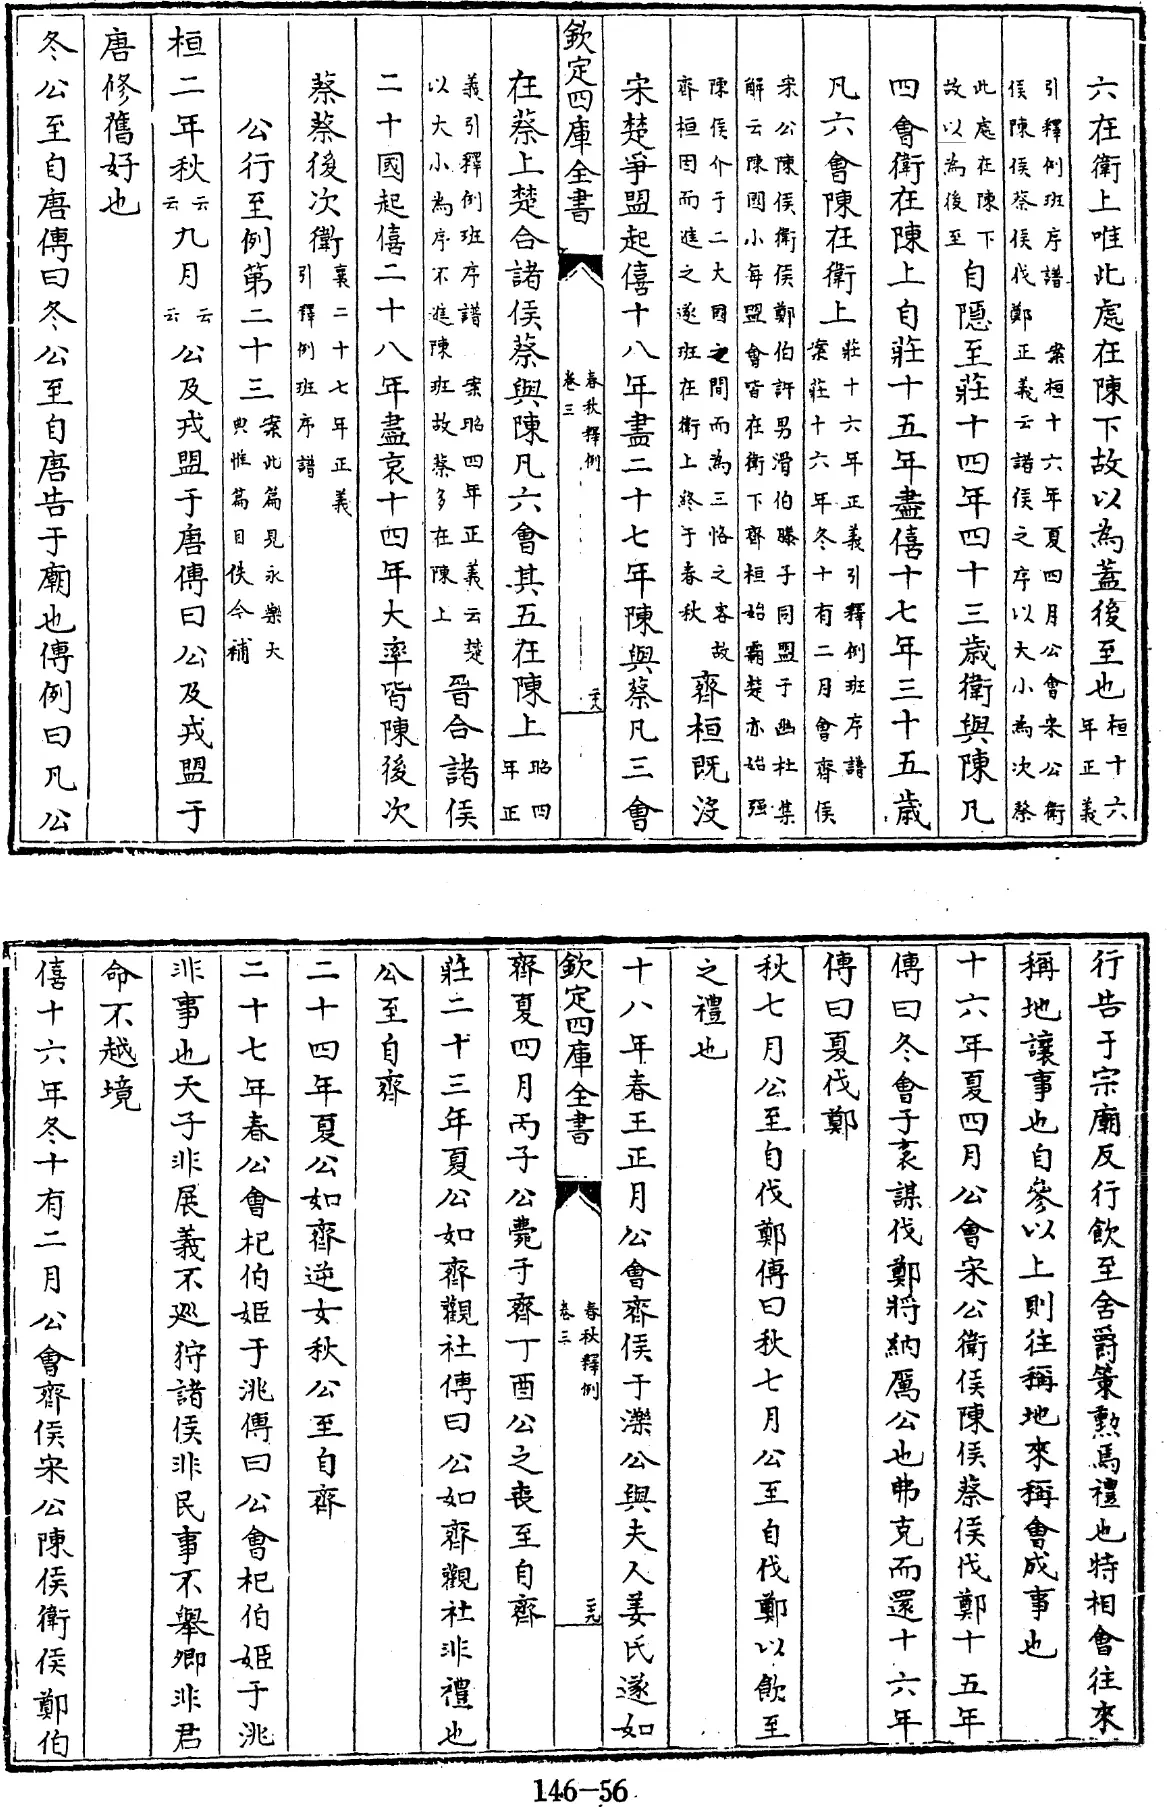 六在衛上唯此處在陳下故以為蓋後至也桓十六年正義
引釋例班序譜 案桓十六年夏四月公會宋公衛侯陳侯蔡侯伐鄭正義云諸侯之序以大小為次蔡
此處在陳下故以為後至自隱至莊十四年四十三歲衛與陳凡
四會衛在陳上自莊十五年盡僖十七年三十五歲
凡六會陳在衛上莊十六年正義引釋例班序譜案莊十六年冬十有二月會齊侯
宋公陳侯衛侯鄭伯許男滑伯滕子同盟于幽杜集解云陳國小每盟會皆在衛下齊桓始霸楚亦始强
陳侯介于二大國之間而為三恪之客故齊桓因而進之遂班在衛上終于春秋齊桓既沒
宋楚爭盟起僖十八年盡二十七年陳與蔡凡三會
欽定四庫全書 春秋釋例 卷三 二十八
在蔡上楚合諸侯蔡與陳凡六會其五在陳上昭四年正
義引釋例班序譜 案昭四年正義云楚以大小為序不進陳班故蔡多在陳上晉合諸侯
二十國起僖二十八年盡哀十四年大率皆陳後次
蔡蔡後次衛襄二十七年正義引釋例班序譜
公行至例第二十三案此篇見永樂大典惟篇目佚今補
桓二年秋云云九月云云公及戎盟于唐傳曰公及戎盟于
唐修舊好也
冬公至自唐傳曰冬公至自唐告于廟也傳例曰凡公
行告于宗廟反行飲至舍爵策勲焉禮也特相會往來
稱地讓事也自參以上則往稱地來稱會成事也
十六年夏四月公會宋公衛侯陳侯蔡侯伐鄭十五年
傳曰冬會于袲謀伐鄭將納厲公也弗克而還十六年
傳曰夏伐鄭
秋七月公至自伐鄭傳曰秋七月公至自伐鄭以飲至
之禮也
十八年春王正月公會齊侯于濼公與夫人姜氏遂如
欽定四庫全書 春秋釋例 卷三 二十九
齊夏四月丙子公薨于齊丁酉公之喪至自齊
莊二十三年夏公如齊觀社傳曰公如齊觀社非禮也
公至自齊
二十四年夏公如齊逆女秋公至自齊
二十七年春公會杞伯姬于洮傳曰公會杞伯姬于洮
非事也天子非展義不巡狩諸侯非民事不舉卿非君
命不越境
僖十六年冬十有二月公會齊侯宋公陳侯衛侯鄭伯
146-56